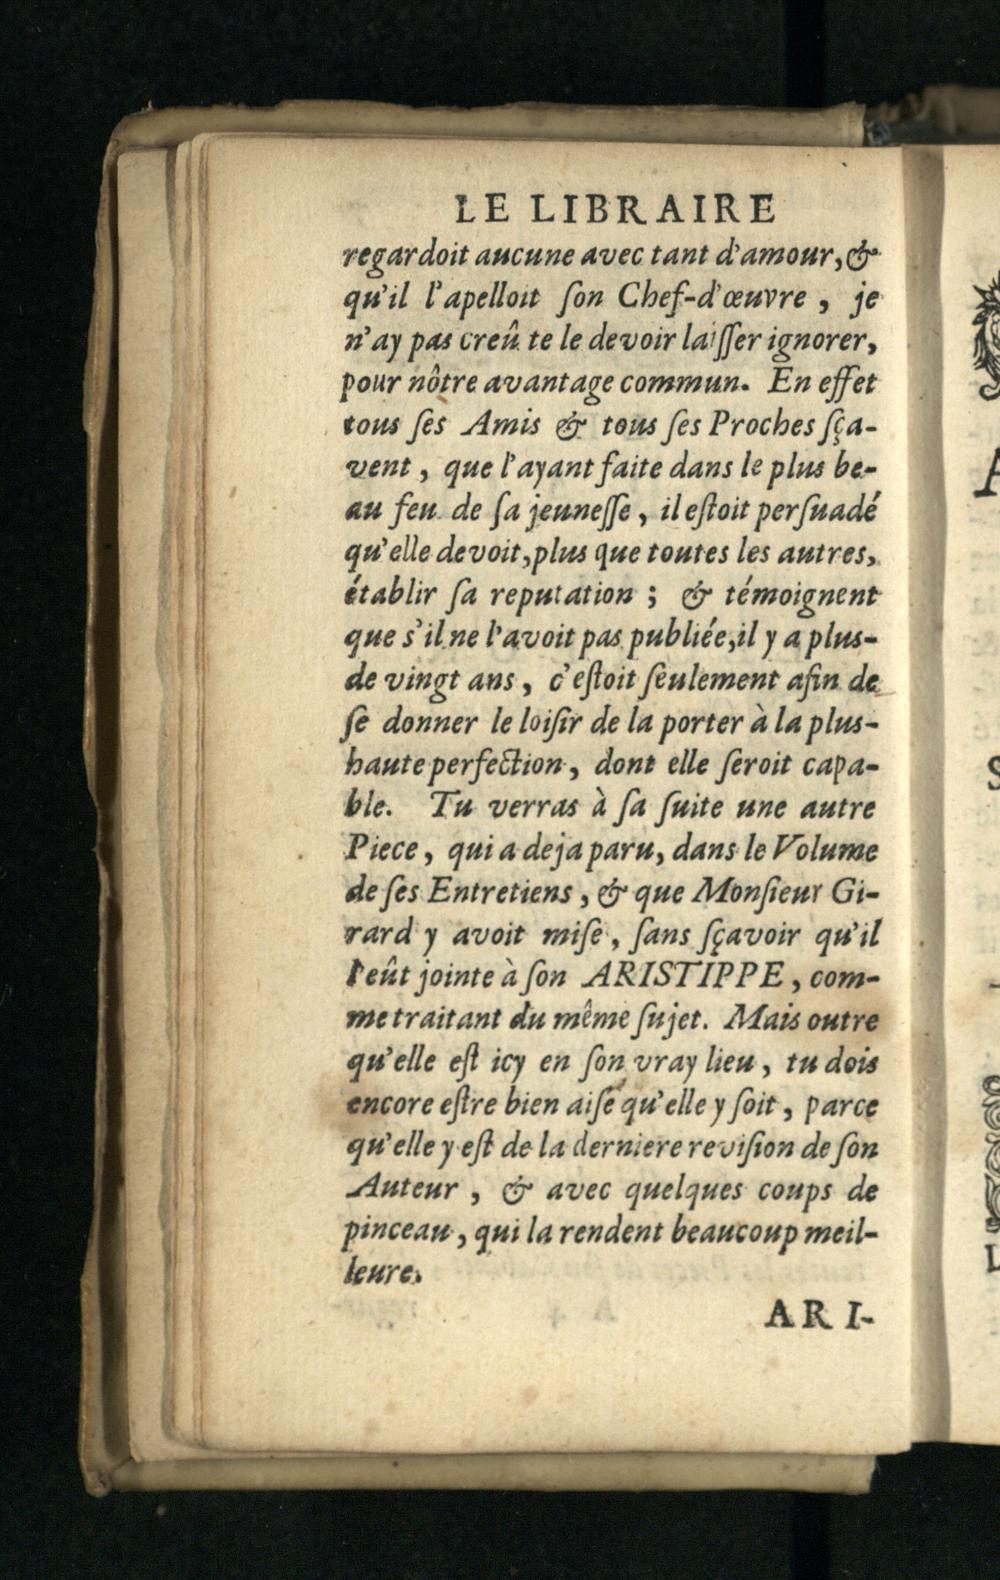 LE LIBRAIRE
regardoit aucune avec tant d'amour, &
qu'il l'apelloit ſon Chef-d'œuvre, je
n'ay pas creû te le devoir laiſſer ignorer,
pour nôtre avantage commun. En effet
tous ſes Amis & tous ſes Proches ſça-
vent, que l'ayant faite dans le plus be-
au feu de ſa jeuneſſe, il eſtoit perſuadé
qu'elle devoit, plus que toutes les autres,
établir ſa reputation; & témoignent
que s'il ne l'avoit pas publiée, il y a plus-
de vingt ans, c'eſtoit ſeulement afin de
ſe donner le loiſir de la porter à la plus-
haute perfection, dont elle ſeroit capa-
ble. Tu verras à ſa ſuite une autre
Piece, qui a deja paru, dans le Volume
de ſes Entretiens, & que Monſieur Gi-
rard y avoit miſe, ſans ſçavoir qu'il
l'eût jointe à ſon ARISTIPPE, com-
me traitant du même ſujet. Mais outre
qu'elle eſt icy en ſon vray lieu, tu dois
encore eſtre bien aiſe qu'elle y ſoit, parce
qu'elle y eſt de la derniere reviſion de ſon
Auteur, & avec quelques coups de
pinceau, qui la rendent beaucoup meil-
leure.
ARI-